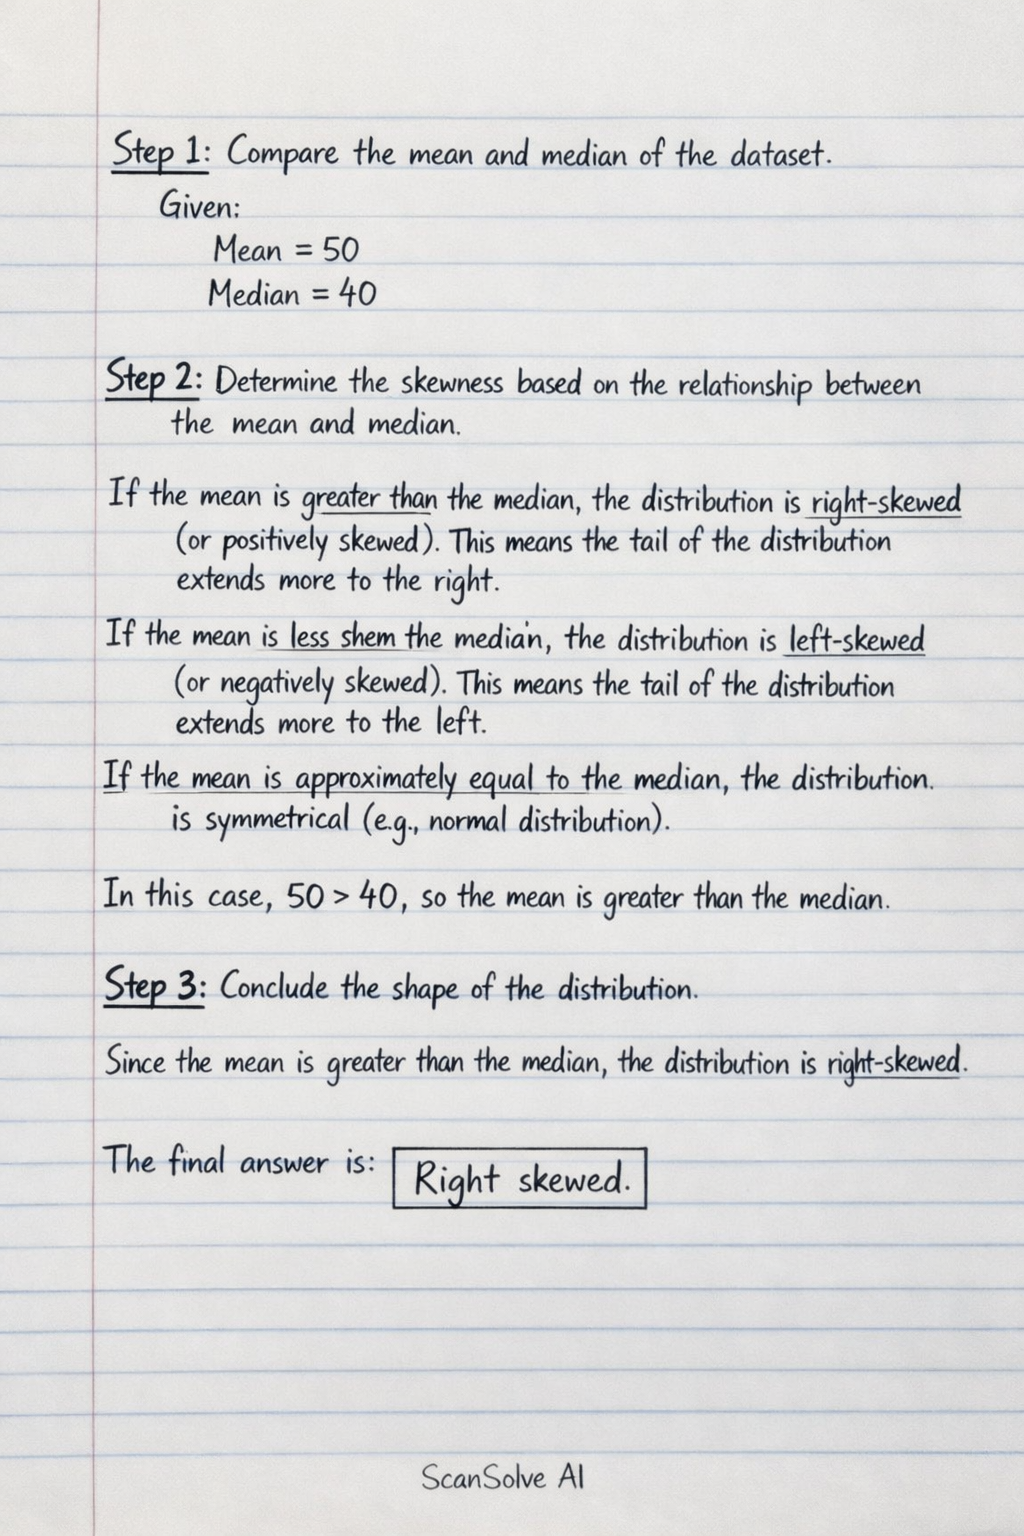 Step 1: Compare the mean and median of the dataset.
Given:
Mean = 50
Median = 40
Step 2: Determine the skewness based on the relationship between
the mean and median.
If the mean is greater than the median, the distribution is right-skewed
(or positively skewed). This means the tail of the distribution
extends more to the right.
If the mean is less shem the median, the distribution is left-skewed
(or negatively skewed). This means the tail of the distribution
extends more to the left.
If the mean is approximately equal to the median, the distribution.
is symmetrical (e.g., normal distribution).
In this case, 50 > 40, so the mean is greater than the median.
Step 3: Conclude the shape of the distribution.
Since the mean is greater than the median, the distribution is right-skewed.
The final answer is: Right skewed.
ScanSolve AI